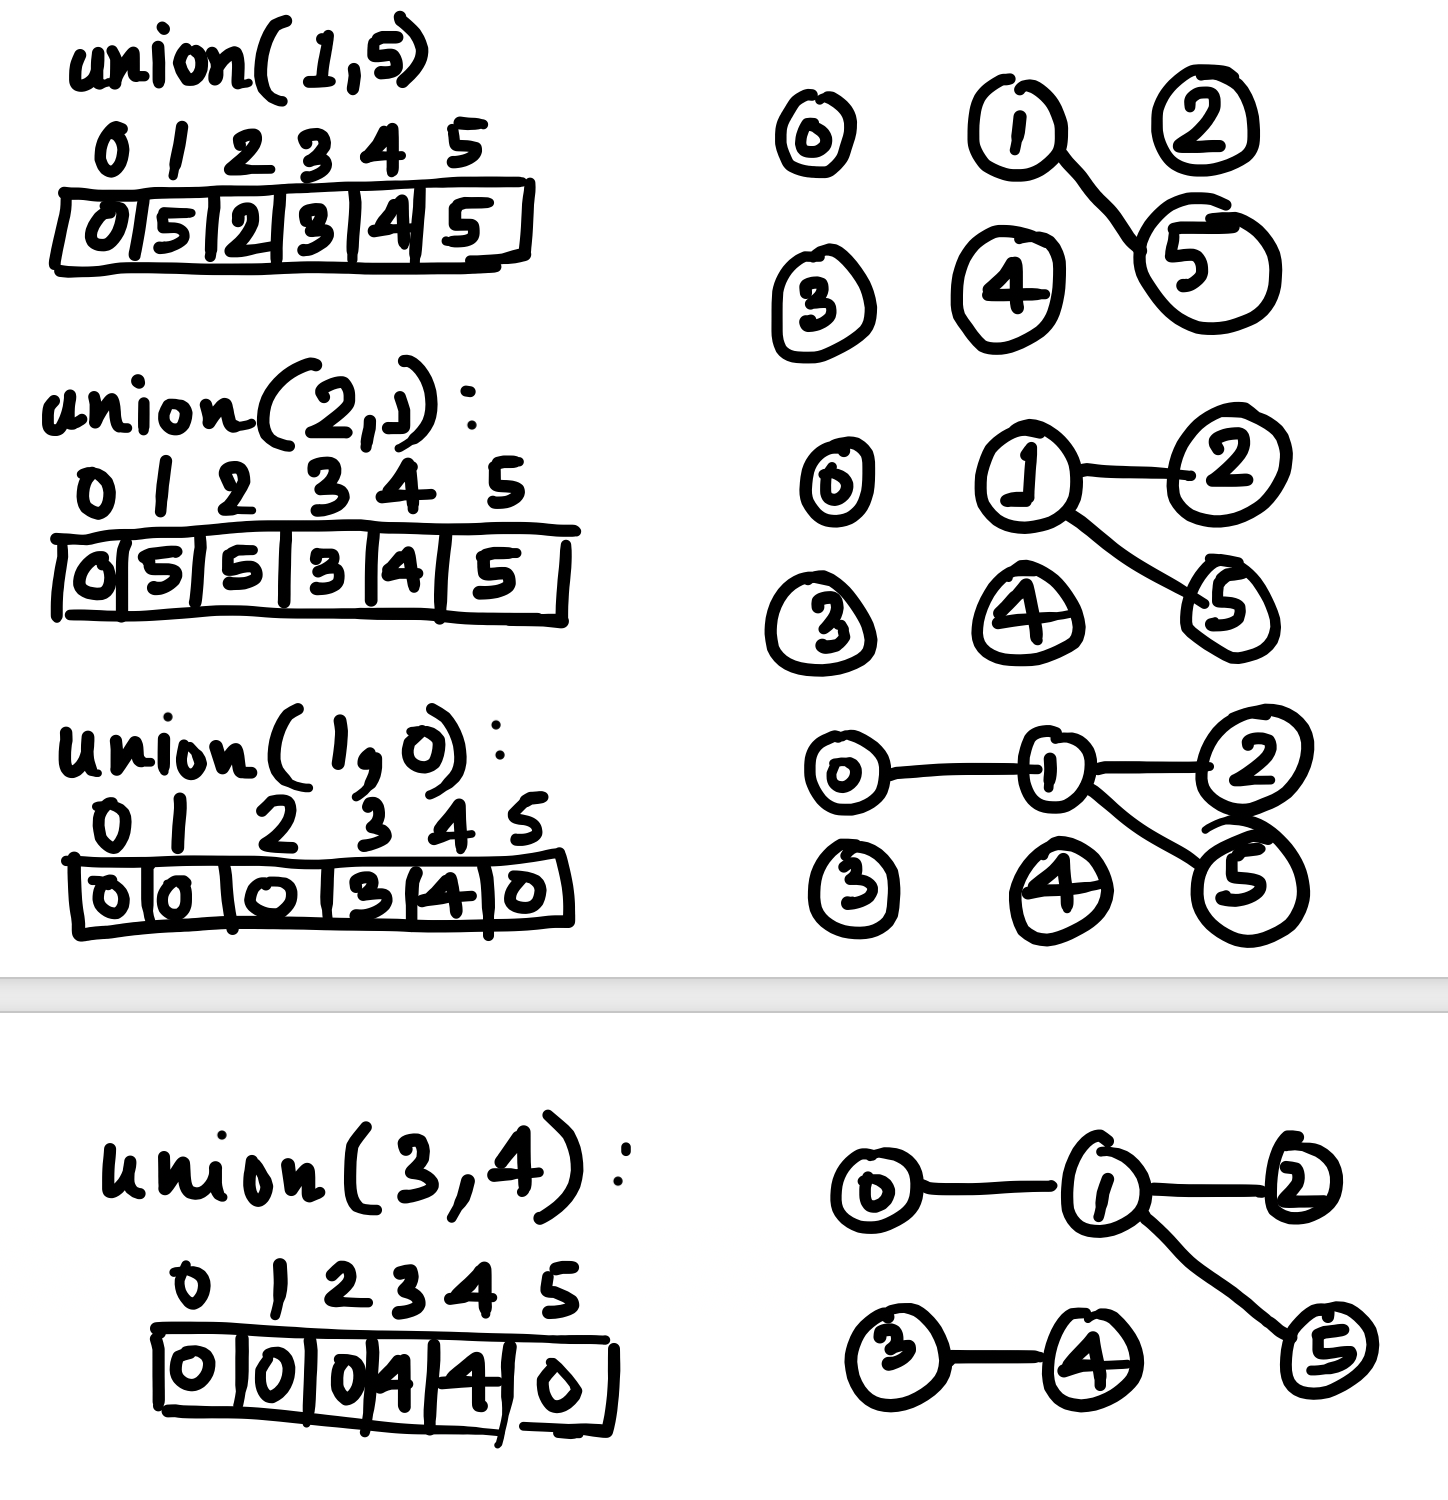 union(1,5)
0 1 2 3 4 5
0 5 2 3 4 5
0 1 2
3 4 5
union(2,1):
0 1 2 3 4 5
0 5 5 3 4 5
0 1 2
3 4 5
union(1,0):
0 1 2 3 4 5
0 0 0 3 4 0
0 1 2
3 4 5
union(3,4):
0 1 2 3 4 5
0 0 0 4 4 0
0 1 2
3 4 5